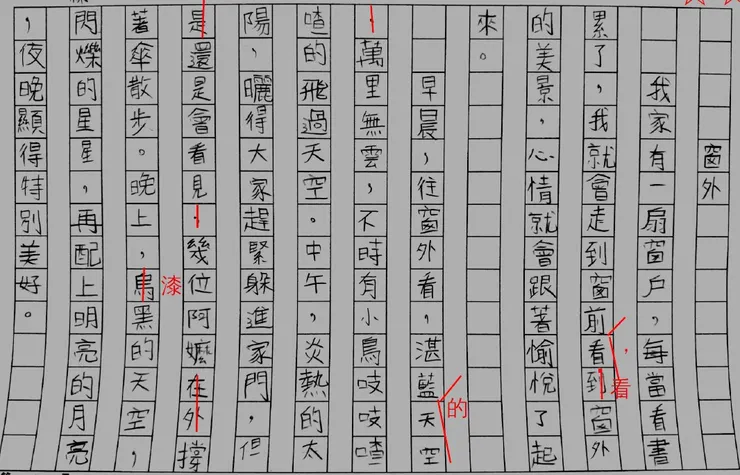 窗外
我家有一扇窗戶，每當看書
累了，我就會走到窗前看到窗外
，看
的美景，心情就會跟著愉悅了起
來。
早晨，往窗外看，湛藍天空
的
，萬里無雲，不時有小鳥吱吱喳
喳的飛過天空。中午，炎熱的太
陽，曬得大家趕緊躲進家門，但
是還是會看見，幾位阿嬤在外撐
著傘散步。晚上，烏黑的天空，
漆
閃爍的星星，再配上明亮的月亮
，夜晚顯得特別美好。